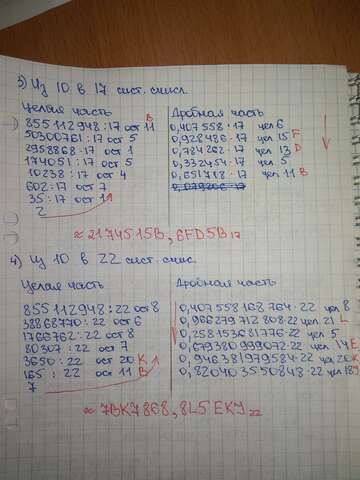 3) Из 10 в 17 сист. числ.
Целая часть
855112948:17 ост 11 B
50300761:17 ост 5
2958868:17 ост 1
174051:17 ост 5
10238:17 ост 4
602:17 ост 7
35:17 ост 1
2
Дробная часть
0,407558·17 цел 6
0,928486·17 цел 15 F
0,784262·17 цел 13 D
0,332454·17 цел 5
0,651718·17 цел 11 B
≈ 2174515B,6FD5B17
4) из 10 в 22 сист. числ.
Целая часть
855112948:22 ост 8
38868770:22 ост 6
1766762:22 ост 8
80307:22 ост 7
3650:22 ост 20 K
165:22 ост 11 B
7
Дробная часть
0,407558168764·22 цел 8
0,966279712808·22 цел 21 L
0,258153681776·22 цел 5
0,679380999072·22 цел 14 E
0,946381979584·22 цел 20 K
0,820403550848·22 цел 18
≈ 7BK7868,8L5EKY22